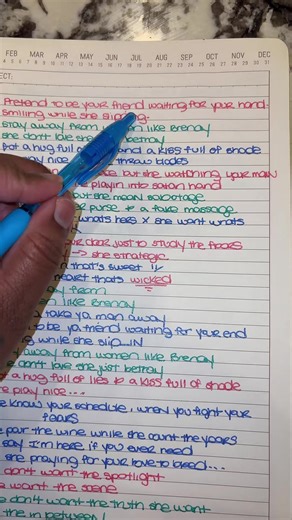 FEB MAR APR MAY JUN JUL AUG SEP OCT NOV DEC
ECT:
Pretend to be your friend waiting for your hand.
Smiling while she slipping.
Stay away from like Brenay
She don't love she betray
Got a hug full and a kiss full of shade
play nice throw blades
but she watching your man
playin into satan hand
but she mean sabotage
purse to a fake massage
what's hers x she want what's
your door just to study the floors
→ she strategic
that's sweet
heart that's wicked
from
en like Brenay
take ya man away
to be ya friend waiting for your end
while she slip-IN
away from women like Brenay
don't love she just betray
a hug full of lies to a kiss full of shade
play nice...
know your schedule, when you fight your
fears
pour the wine while she count the years
say I'm here if you ever need
she praying for your love to bleed...
don't want the spotlight
want the scene
don't want the truth she want
the in between!